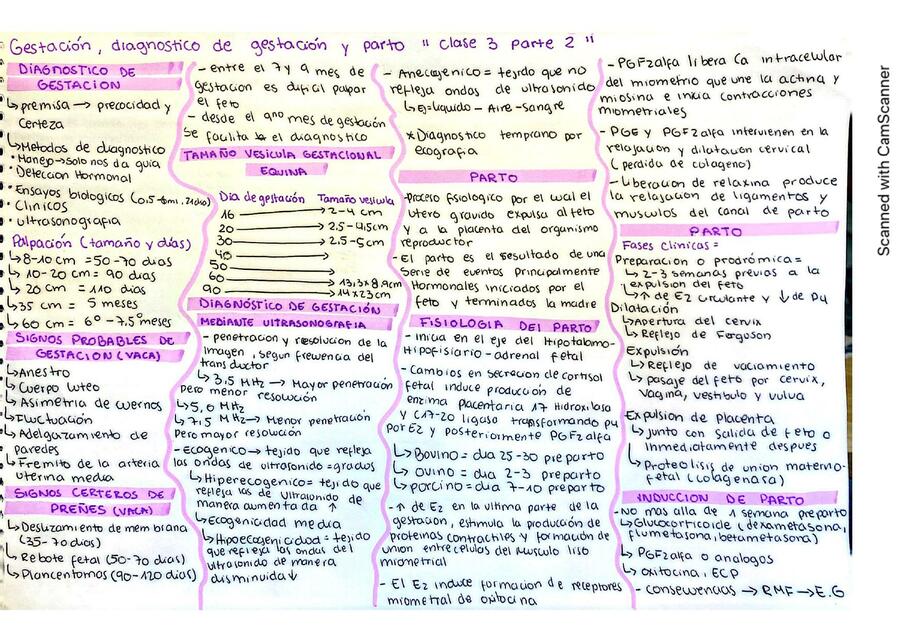 Gestación, diagnostico de gestación y parto "clase 3 parte 2"
DIAGNOSTICO DE
GESTACION
↳ premisa → precocidad y
certeza
↳ Metodos de diagnostico
• Manejo → solo nos da guia
• Deteccion Hormonal
• Ensayos biologicos
• Clinicos
• ultrasonografia
Palpación (tamaño y días)
↳ 8-10 cm = 50-70 dias
↳ 10-20 cm = 90 dias
↳ 20 cm = 110 dias
↳ 35 cm = 5 meses
↳ 60 cm = 6º - 7.5º meses
SIGNOS PROBABLES DE
GESTACION (VACA)
↳ Anestro
↳ Cuerpo luteo
↳ Asimetria de cuernos
↳ Fluctuación
↳ Adelgazamiento de
paredes
↳ Fremito de la arteria
uterina media
SIGNOS CERTEROS DE
PREÑES (VACA)
↳ Deslizamiento de membrana
(35-70 dias)
↳ Rebote fetal (50-70 dias)
↳ Plancentomos (90-120 dias)
- entre el 7 y 9 mes de
gestacion es dificil palpar
el feto
- desde el 9no mes de gestación
se facilita el diagnostico
TAMAÑO VESICULA GESTACIONAL
EQUINA
Dia de gestación Tamaño vesicula
16 → 2-4 cm
20 → 2.5-4.5cm
30 → 2.5-5cm
40 →
50 →
60 → 13,3x8.9cm
90 → 14x23cm
DIAGNÓSTICO DE GESTACIÓN
MEDIANTE ULTRASONOGRAFIA
- penetración y resolucion de la
imagen, segun frecuencia del
transductor
↳ 3,5 MHz → Mayor penetración
pero menor resolución
↳ 5,0 MHz
↳ 7,5 MHz → Menor penetración
pero mayor resolución
- Ecogenico → tejido que refleja
las ondas de ultrasonido = grados
↳ Hiperecogenico = tejido que
refleja las de ultrasonido de
manera aumentada ↑
↳ Ecogenicidad media
↳ Hipoecogenicidad = tejido
que refleja las ondas del
ultrasonido de manera
disminuida ↓
- Anecogenico = tejido que no
refleja ondas de ultrasonido
↳ Ej = Liquido - Aire - Sangre
* Diagnostico temprano por
ecografia
PARTO
- Proceso fisiologico por el cual el
utero gravido expulsa al feto
y a la placenta del organismo
reproductor
- El parto es el resultado de una
serie de eventos principalmente
Hormonales iniciados por el
feto y terminados la madre
FISIOLOGIA DEL PARTO
- inicia en el eje del Hipotalamo-
Hipofisiario-adrenal fetal
- Cambios en secrecion de cortisol
fetal induce producción de
enzima placentaria 17 Hidroxilasa
y C17-20 ligasa transformando P4
por E2 y posteriormente PGF2alfa
↳ Bovino = dia 25-30 pre parto
↳ ovino = dia 2-3 preparto
↳ porcino = dia 7-10 preparto
- ↑ de E2 en la ultima parte de la
gestacion, estimula la producción de
proteinas contractiles y formación de
union entre celulas del musculo liso
miometrial
- El E2 induce formacion de receptores
miometral de oxitocina
- PGF2alfa libera Ca intracelular
del miometrio que une la actina y
miosina e inicia contracciones
miometriales
- PGE y PGF2alfa intervienen en la
relajacion y dilatación cervical
(perdida de colageno)
- Liberacion de relaxina produce
la relajacion de ligamentos y
musculos del canal de parto
PARTO
Fases clinicas =
Preparacion o prodrómica =
↳ 2-3 semanas previos a la
expulsion del feto
↳ ↑ de E2 circulante y ↓ de P4
Dilatación
↳ Apertura del cervix
↳ Reflejo de Ferguson
Expulsión
↳ Reflejo de vaciamiento
↳ pasaje del feto por cervix,
vagina, vestibulo y vulva
Expulsion de Placenta
↳ Junto con salida de feto o
inmediatamente despues
↳ Proteolisis de union materno-
fetal (colagenara)
INDUCCION DE PARTO
- No mas alla de 1 semana preparto
↳ Glucocorticoide (dexametasona,
flumetasona, betametasona)
↳ PGF2alfa o analogos
↳ oxitocina, ECP
- consecuencias → RMF → E.G
Scanned with CamScanner